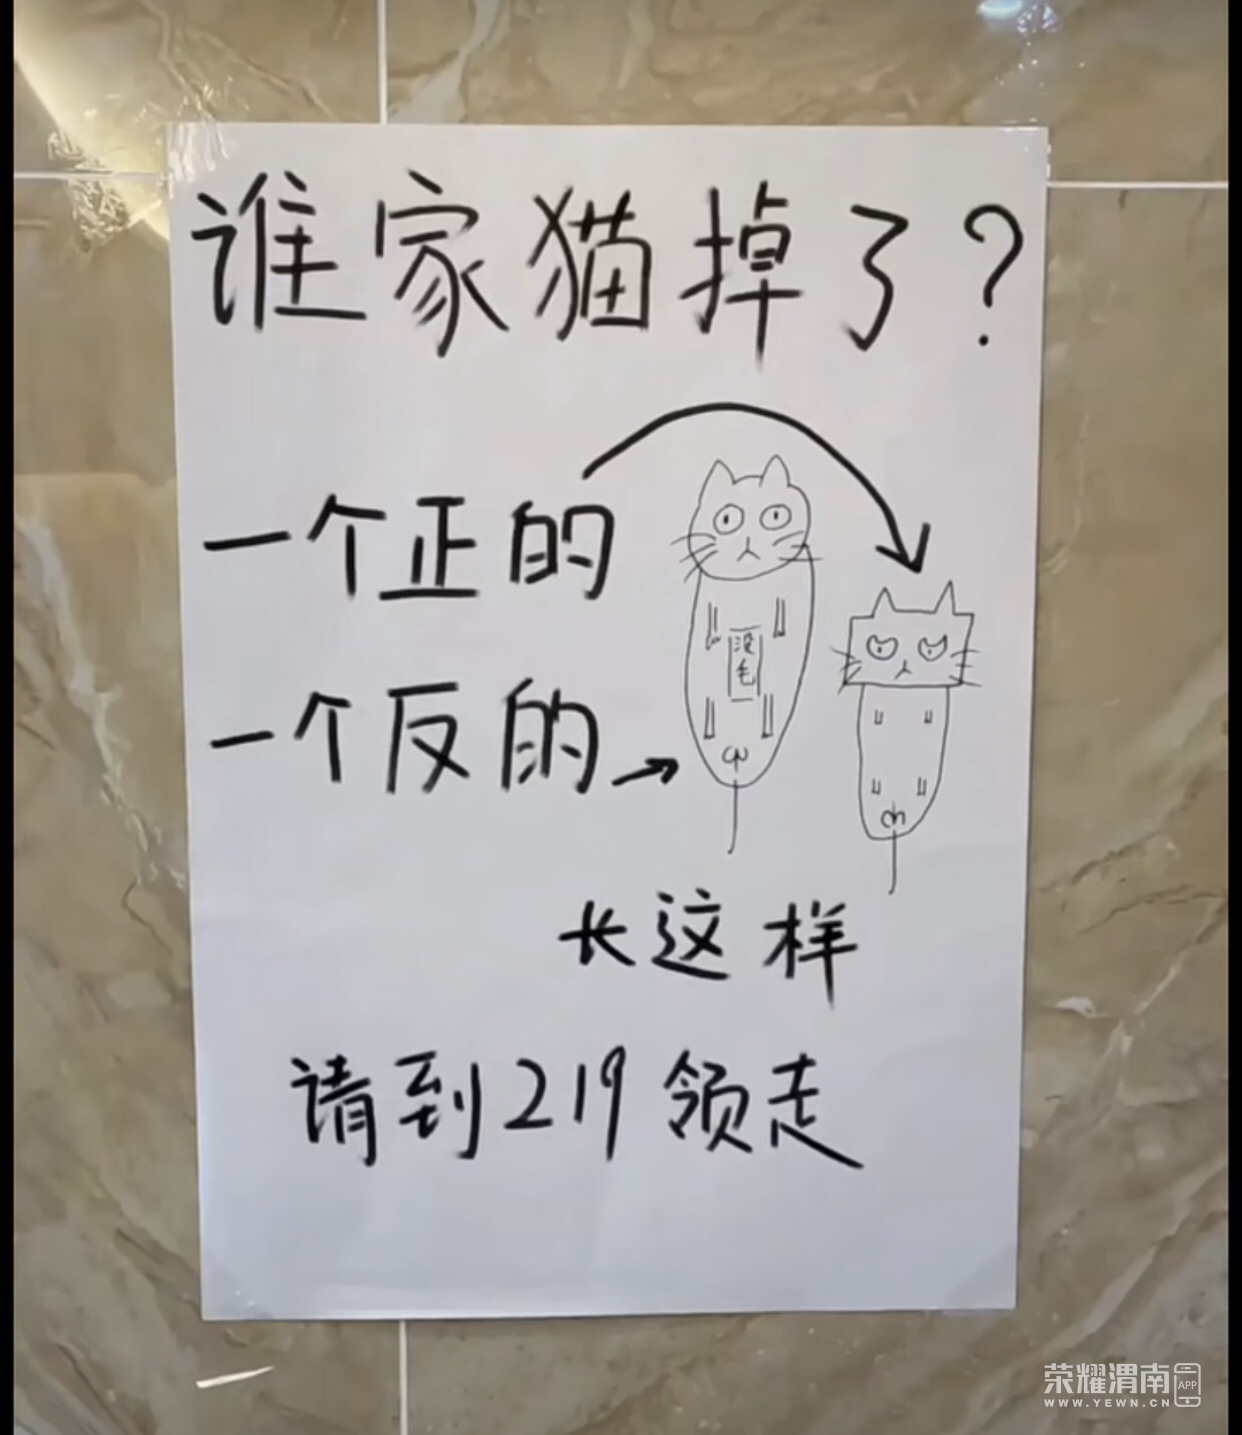 谁家猫掉了?
一个正的
一个反的
没毛
长这样
请到219领走
荣耀渭南 APP
WWW.YEWN.CN